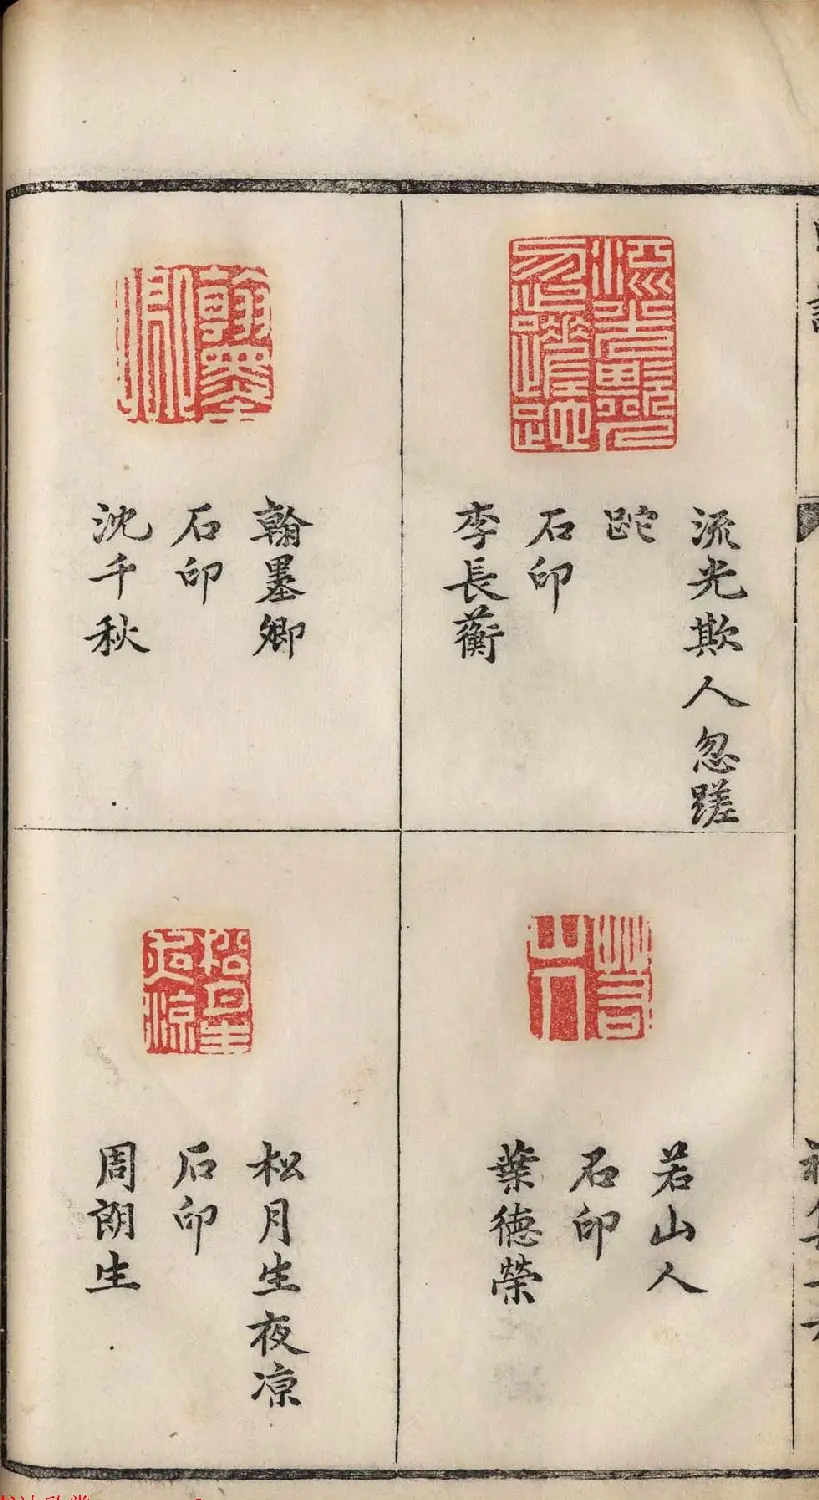 流光欺人忽蹉
跎
石印
李長蘅
翰墨卿
石印
沈千秋
若山人
石印
葉德榮
松月生夜凉
石印
周朗生